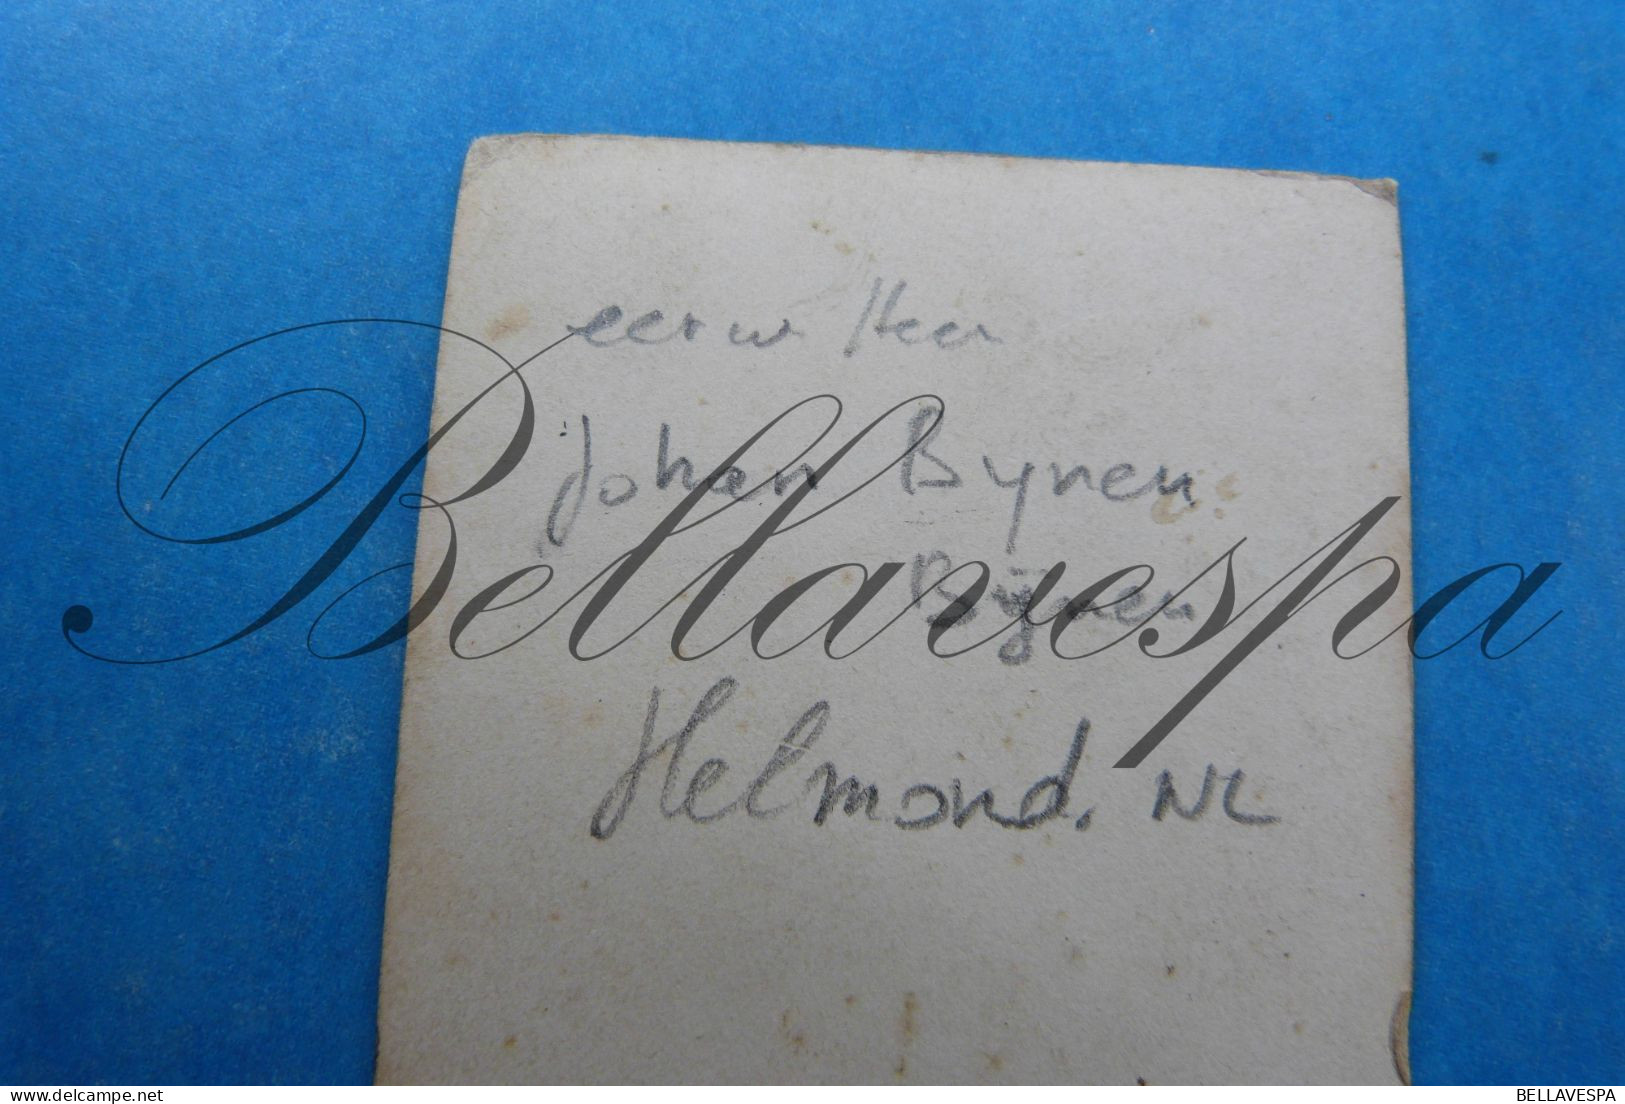 eerw Heer
Johan Bynen
Bijnen
Helmond. NL
Bellavespa
delcampe.net
BELLAVESPA